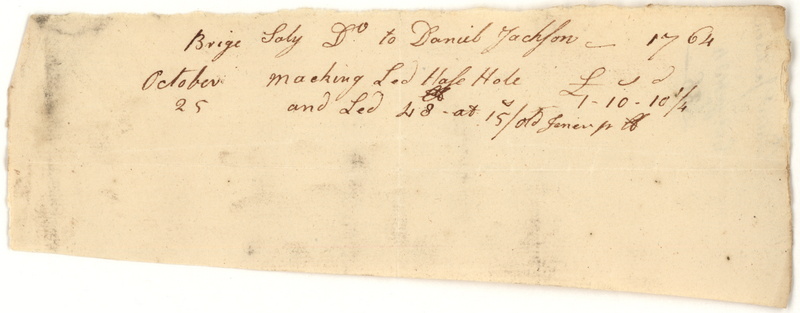 Brige Saly Do to Daniel Jackson — 1764
October macking Led Hase Hole £ s d
25 and Led 48 lb - at 15/ old tener pr lb 1-10-10 1/4